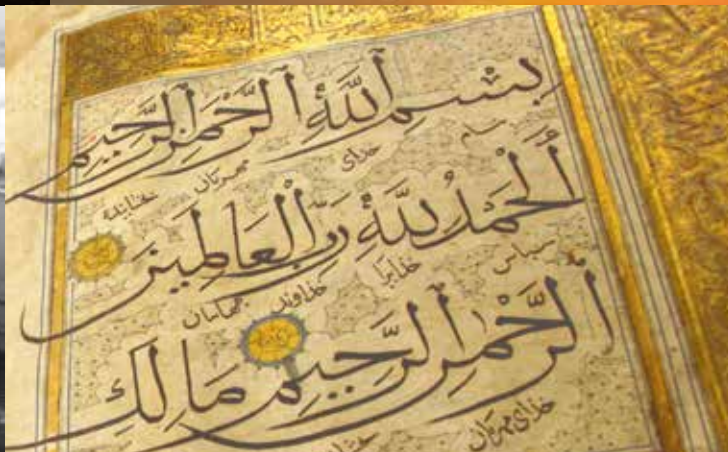 بِسْمِ اللَّهِ الرَّحْمَنِ الرَّحِيمِ
خدای مهربان
أَلْحَمْدُ لِلَّهِ رَبِّ الْعَالَمِينَ
سپاس خدایرا خداوند جهانیان
أَلرَّحْمَنِ الرَّحِيمِ مَالِكِ
خدای مهربان